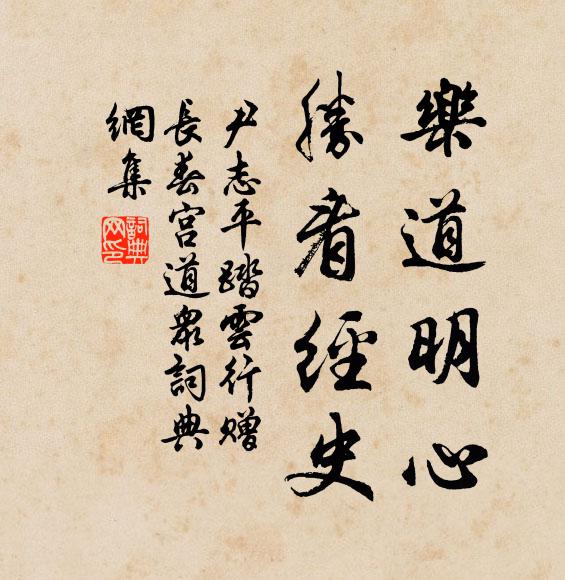 樂道明心
勝看經史
尹志平踏雲行赠
長春宫道眾詞典
網集
詞典
网印